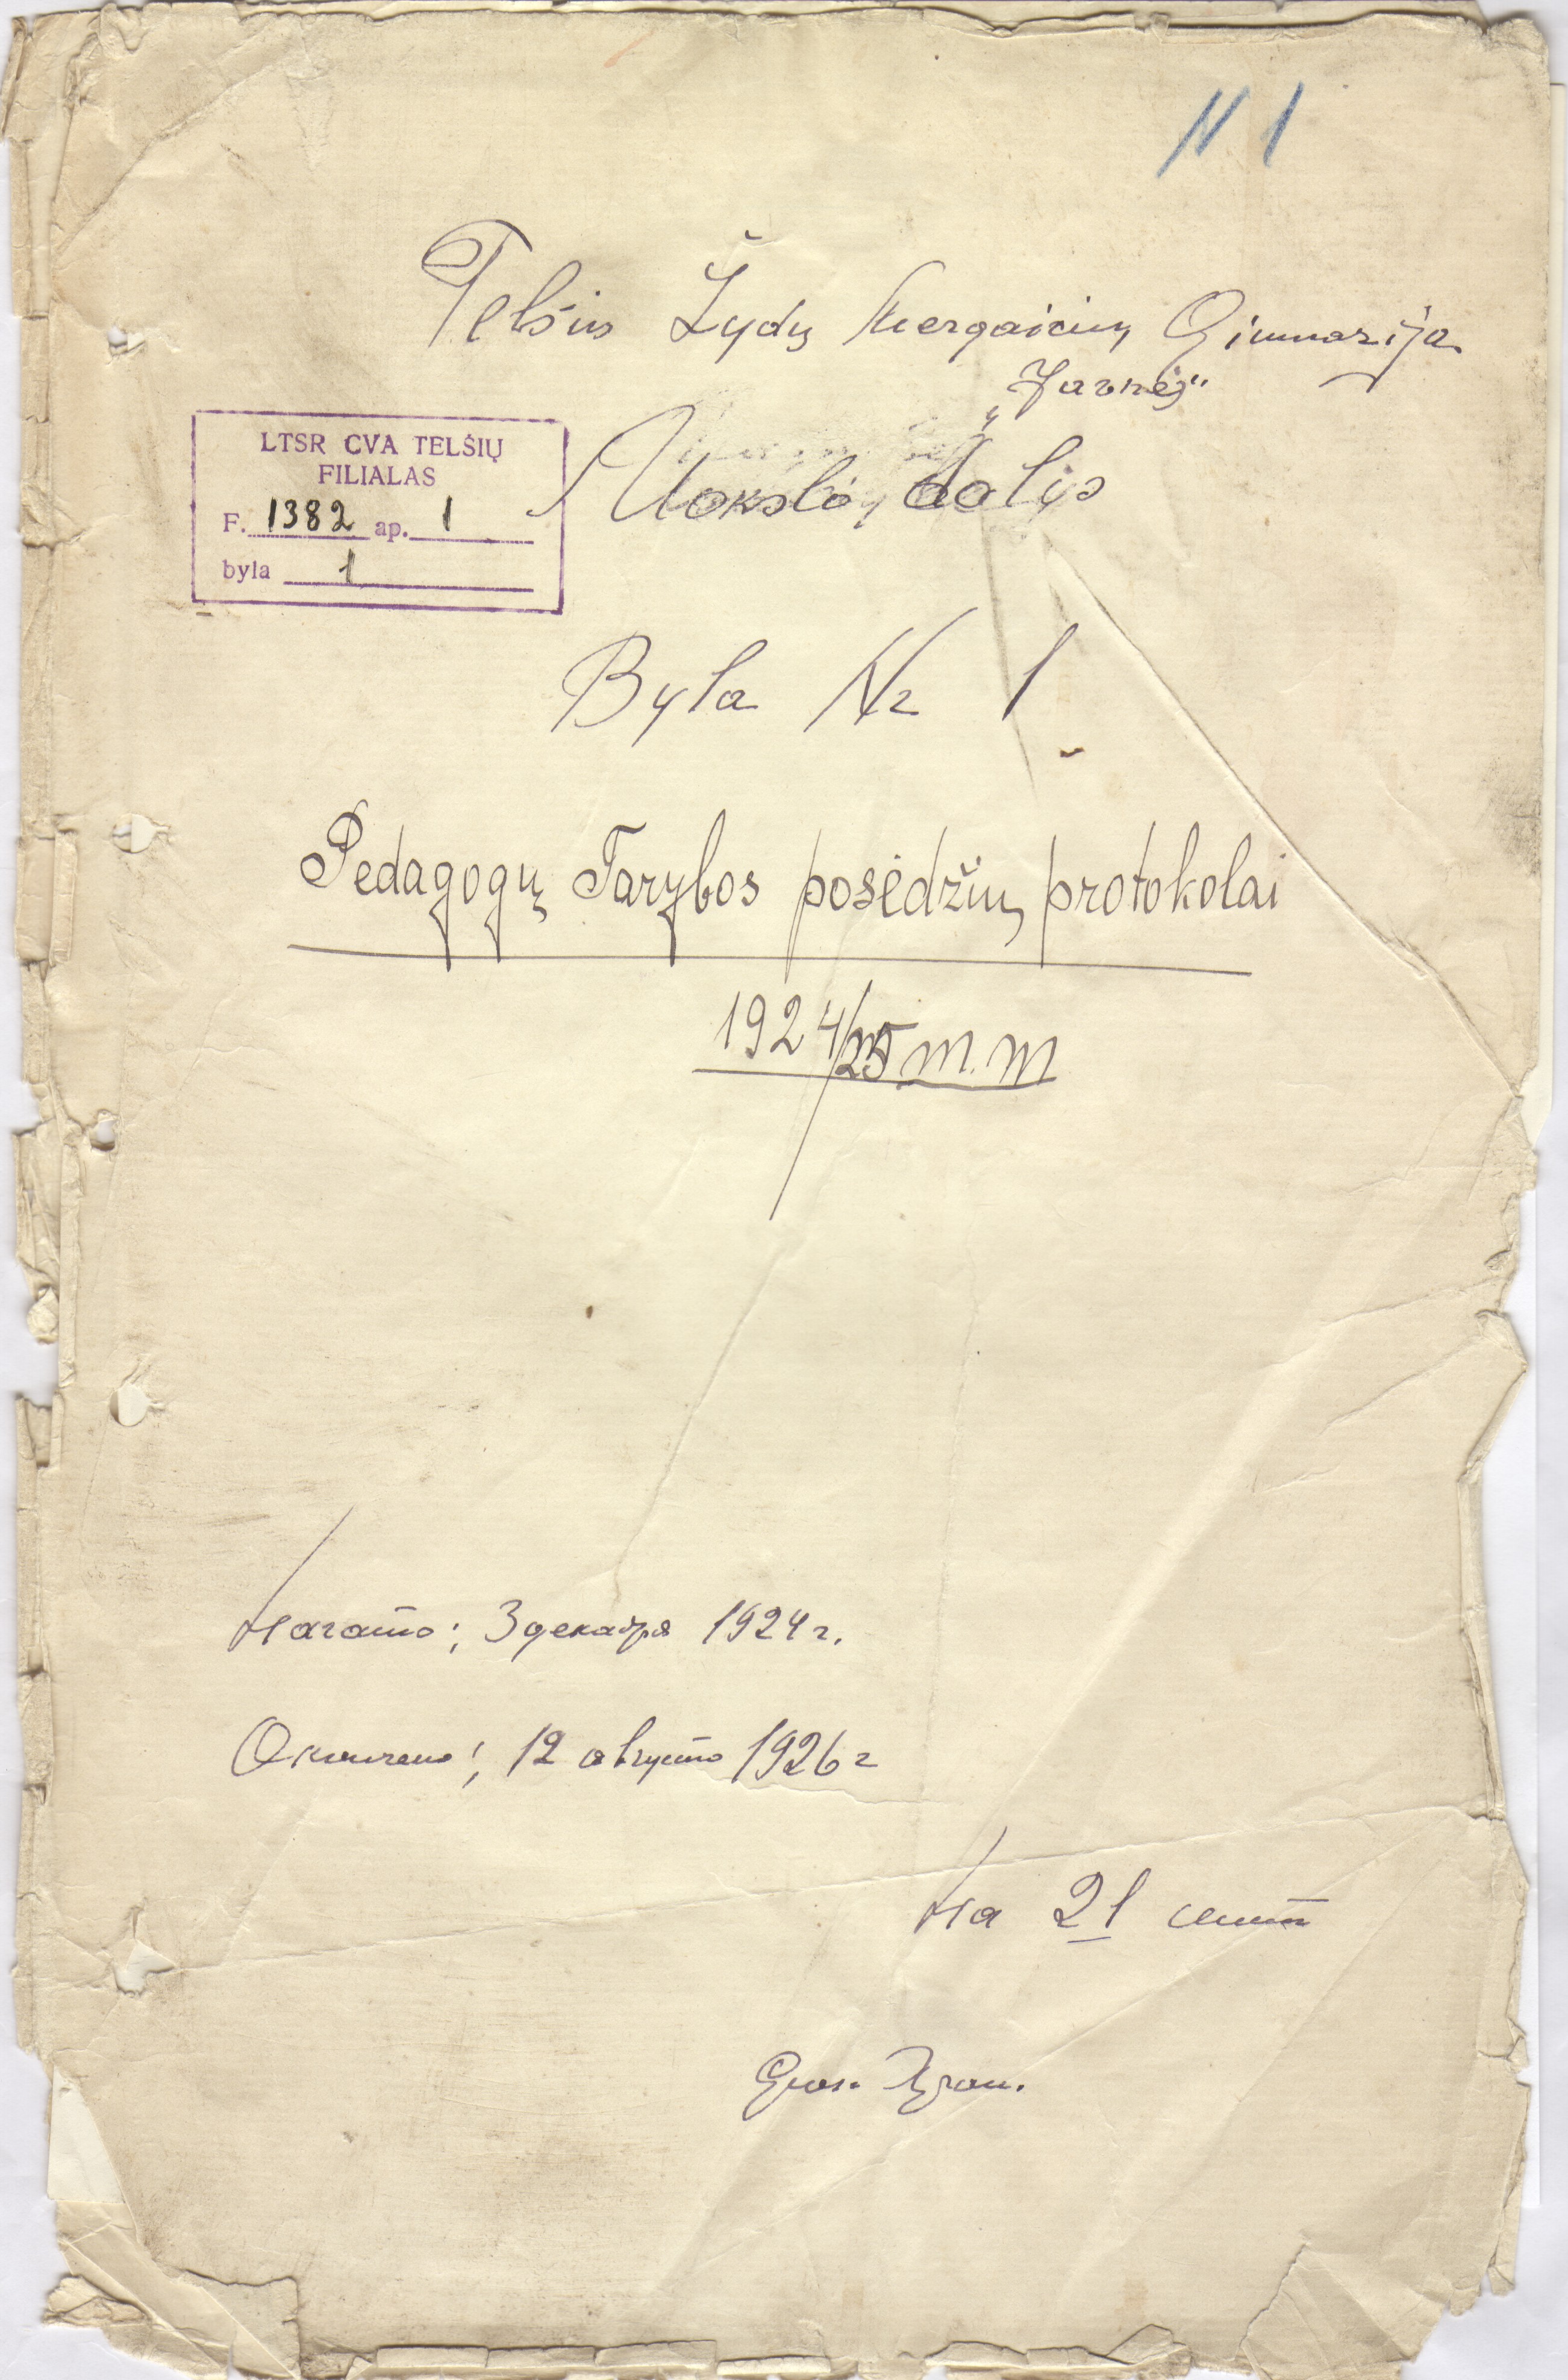 N 1
Telšių Žydų Mergaičių Gimnazija
„Javnės"
LTSR CVA TELŠIŲ
FILIALAS
F. 1382 ap. 1
byla 1
Mokslo dalys
Byla Nr 1
Pedagogų Tarybos posėdžių protokolai
1924/25 m. m
Начато; 3 декабря 1924 г.
Окончено; 12 августа 1926 г
На 21 листа